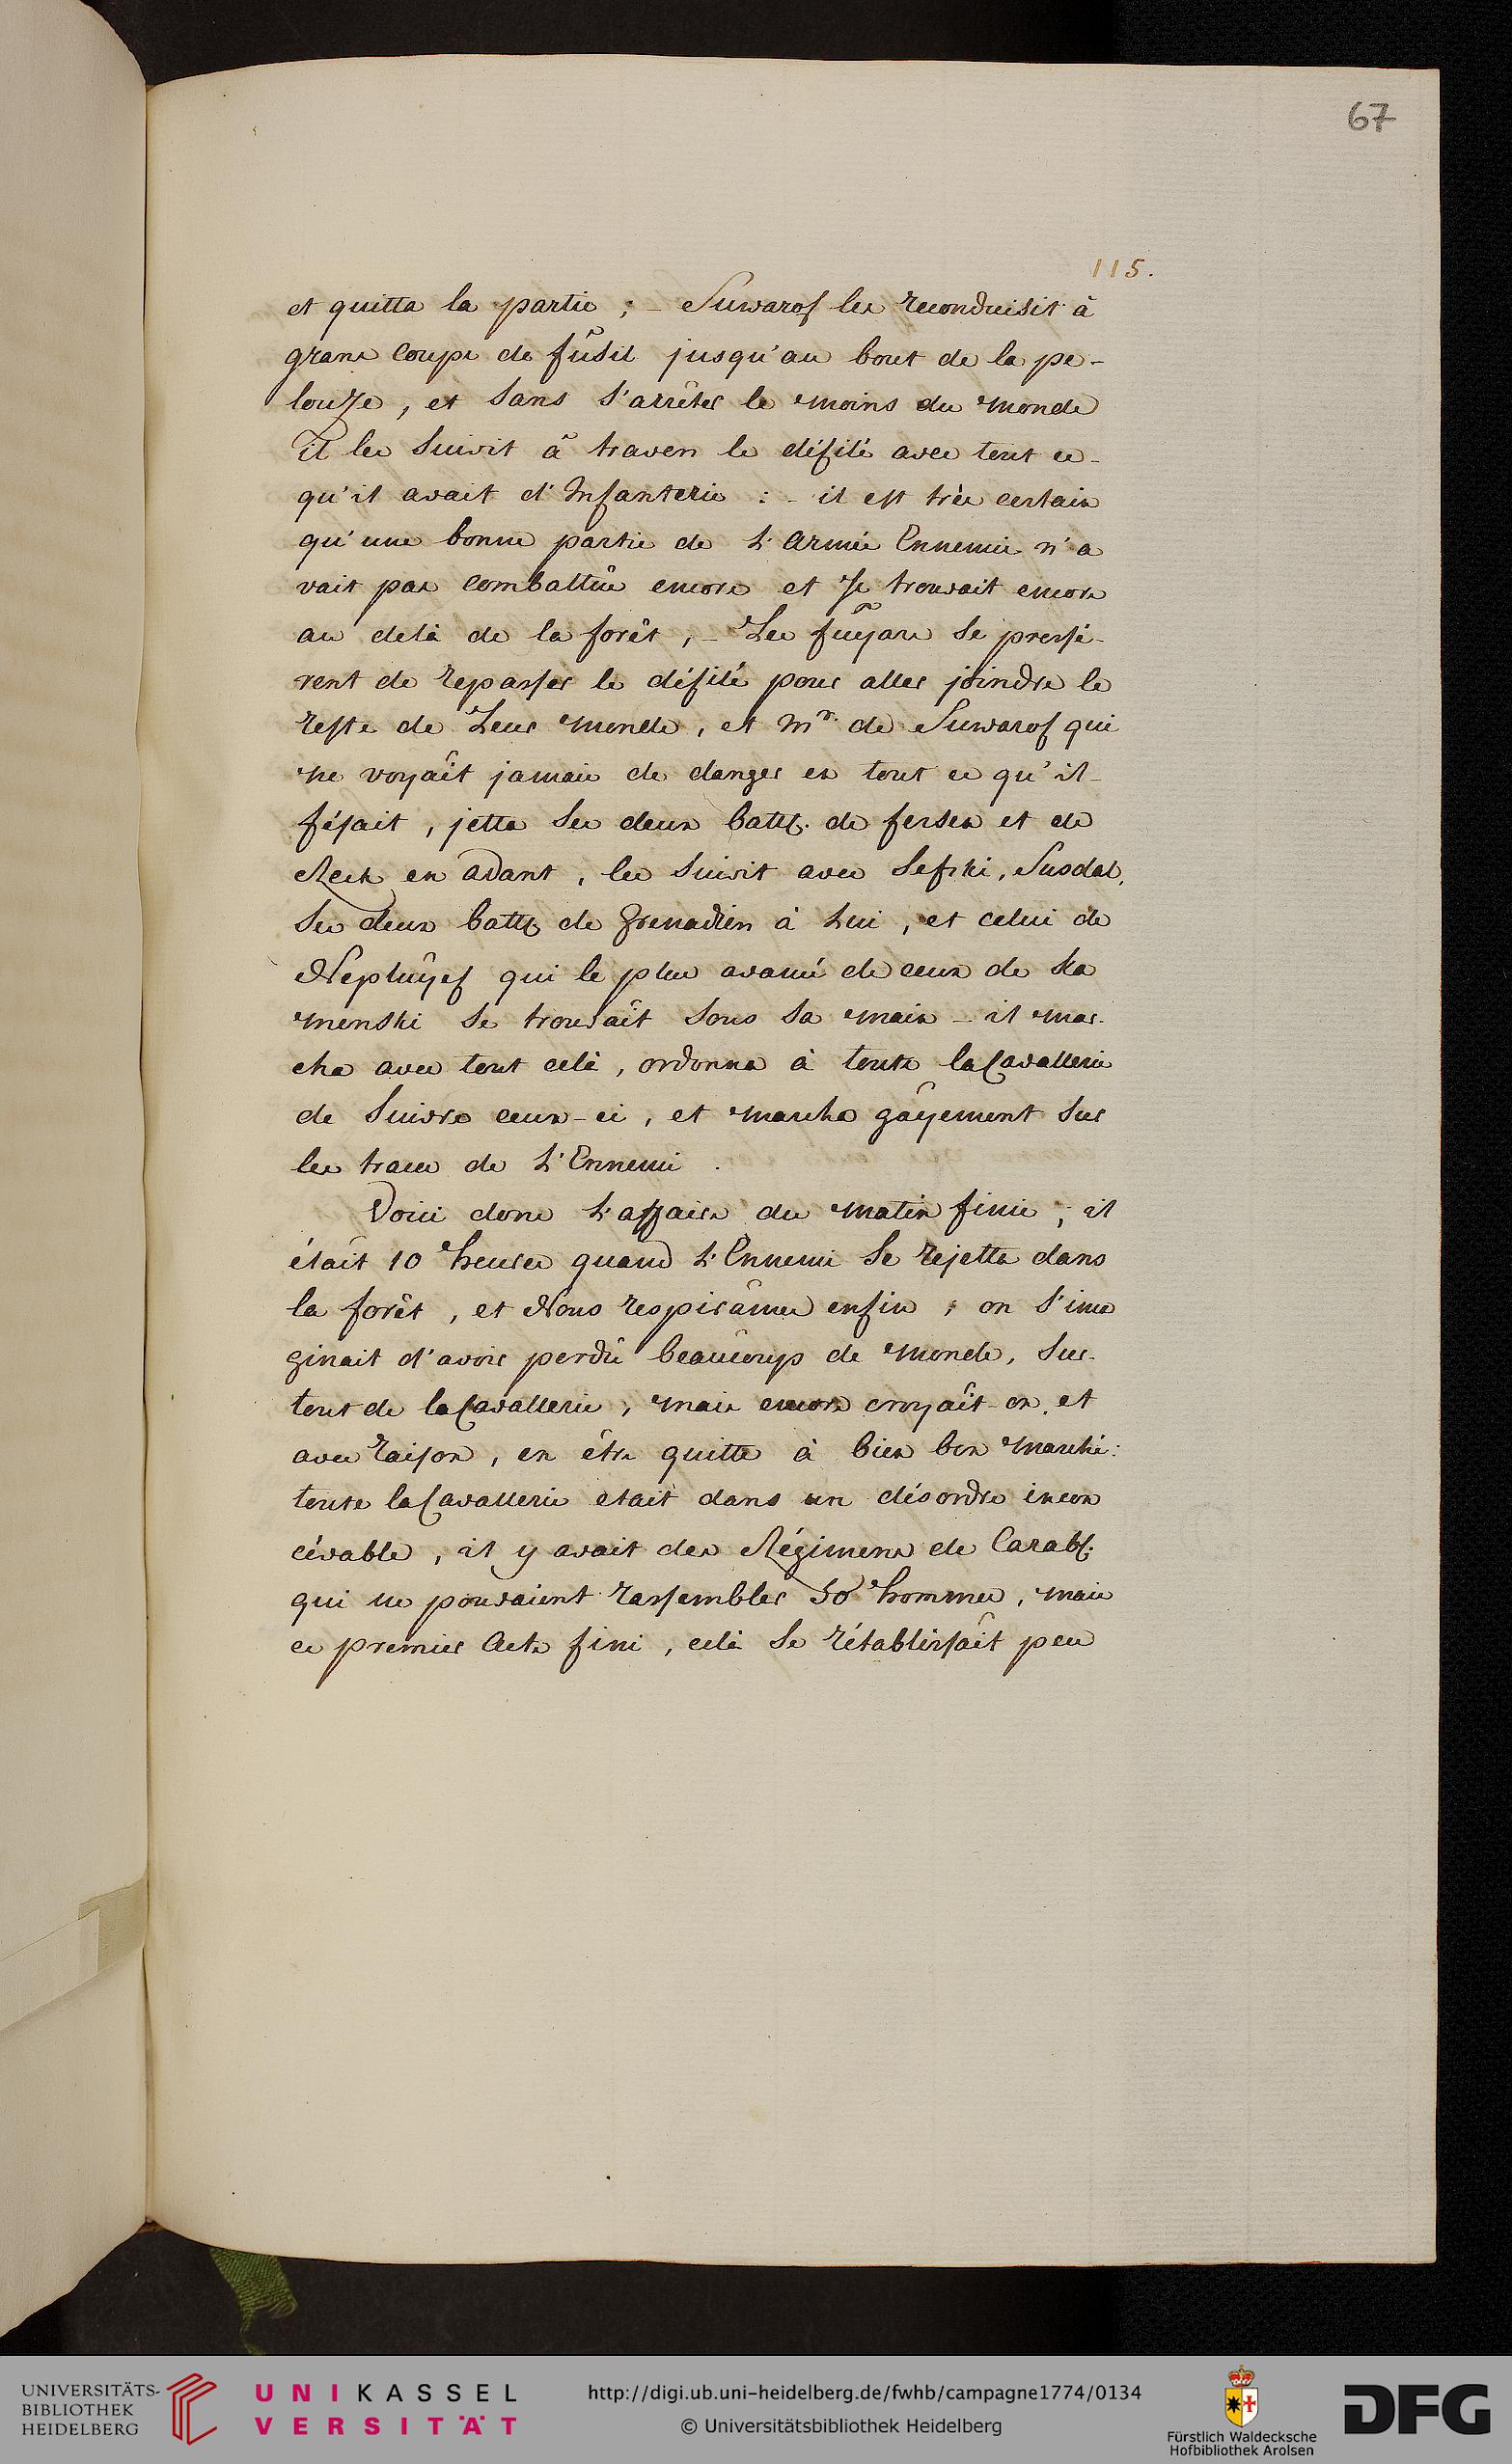 67
115.
et quitta la partie ; - Suwarof les reconduisit à
grans Coups de fûsil jusqu'au bout de la pe-
louze, et Sans S'arrêter le moins du monde
il les Suivit à travers le défilé avec tout ce-
qu'il avait d'Infanterie : - il est très certain
qu'une bonne partie de L'Armée Ennemie n'a
vait pas combattûe encore et se trouvait encore
au delà de la forêt, - Les fuÿars se pressé-
rent de repasser le défilé pour aller joindre le
reste de Leur monde, et Mr. de Suwarof qui
ne voyâit jamais de danger en tout ce qu'il-
fésait, jetta Ses deux batt. de fersen et de
Reck en avant, les Suivit avec Sefski, Susdal,
Ses deux batt. de Grenadiers à Lui, et celui de
Nepluÿef qui le plus avancé de ceux de Ka
menski Se trouvâit Sous Sa main - il mar-
cha avec tout celà, ordonna à toute la Cavallerie
de Suivre ceux-ci, et marcha gâyement Sur
les traces de L'Ennemi.
Voici donc L'affaire du matin finie ; il
étâit 10 heures quand L'Ennemi Se rejetta dans
la forêt, et Nous respirâmes enfin ; on S'ima
ginait d'avoir perdû beaûcoups de monde, Sur-
tout de la Cavallerie, mais encore croyâit-on, et
avec raison, en être quitte à bien bon marché:
toute la Cavallerie etait dans un désordre incon
cévable, il y avait des Régimens de Carab.
qui ne pouvaient rassembler 50 hommes, mais
ce premier Acte fini, celà Se rétablissâit peu
UNIVERSITÄTS-
BIBLIOTHEK
HEIDELBERG
UNIKASSEL
VERSITÄT
http://digi.ub.uni-heidelberg.de/fwhb/campagne1774/0134
© Universitätsbibliothek Heidelberg
Fürstlich Waldecksche
Hofbibliothek Arolsen
DFG